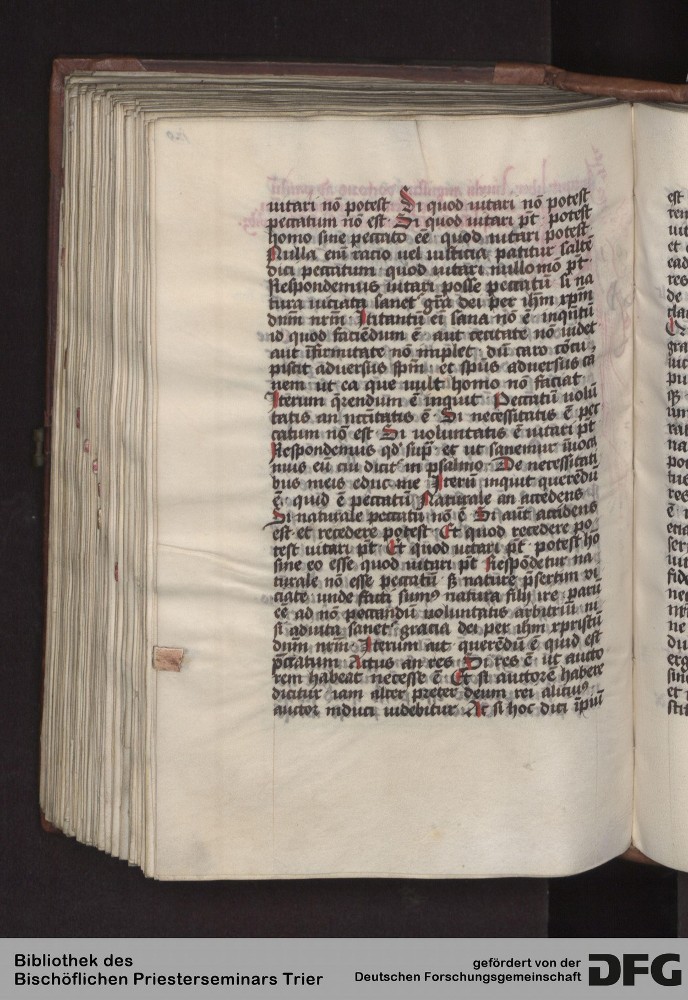 uitari nō potest Si quod uitari nō potest
peccatum nō est Si quod uitari pt̄ potest
homo sine peccato eē quod uitari potest
Nulla eni racio uel iusticia patitur saltē
dici peccatum quod uitari nullo mō pt̄
Respondemus uitari posse peccatū si na
tura uiciata sanet gr̄a dei per ihm xpm̄
dnm nrm̄ Intantū ei sana nō ē inq̄ntū
id quod faciēdum ē aut cecitate nō uidet
aut īfirmitate nō implet dū caro cōcu
piscit aduersus spm̄ et spūs aduersus ca
nem ut ea que uult homo nō faciat
Iterum q̄rendum ē inquit Peccatū uolū
tatis an nc̄citatis ē Si necessitatis ē pec
catum nō est Si uoluntatis ē uitari pt̄
Respondemus qd̄ sup̄ et ut sanemur īuoca
mus eū cui dicit in psalmo De necessitati
bus meis educ me Iterū inquit querēdū
ē quid ē peccatū Naturale an accedens
Si naturale peccatū nō ē Si aūt accidens
est et recedere potest Et quod recedere po
test uitari pt̄ Et quod uitari pt̄ potest ho
sine eo esse quod uitari pt̄ Respōdetur na
turale nō esse peccatū s̄ nature p̄sertim vi
ciate unde facti sumꝰ natura filij ire parū
eē ad nō peccandū uoluntatis arbitriū ni
si adiuta sanet gracia dei per ihm xpristū
dnm nrm Iterum aūt querēdū ē quid est
pc̄catum Actus an res Si res ē ut aucto
rem habeat necesse ē Et si autorē habere
dicitur iam alter preter deum rei alicuiꝰ
auctor induci uidebitur At si hoc dici īpiū
Bibliothek des
Bischöflichen Priesterseminars Trier
gefördert von der
Deutschen Forschungsgemeinschaft
DFG